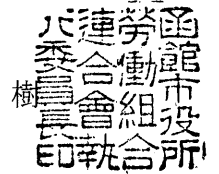 函館市役所
勞働組合
連合會執
行委員長印
樹